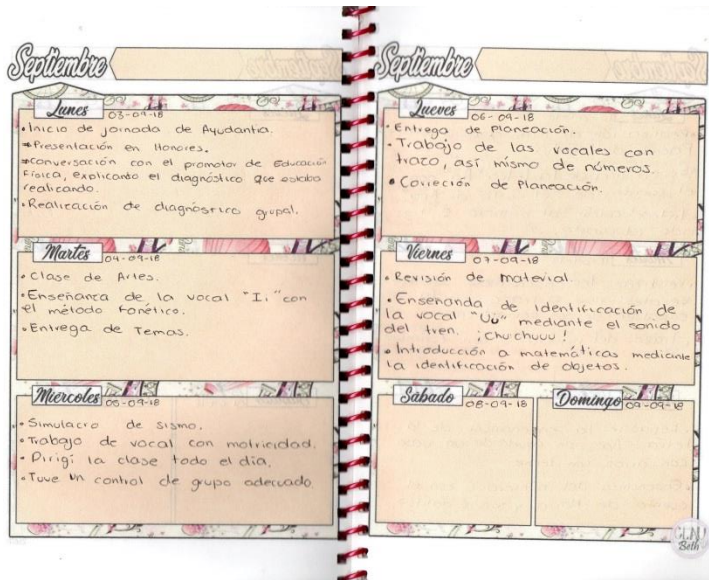 Septiembre
Lunes
03-09-18
•Inicio de jornada de Ayudantia.
*Presentación en Honores.
*Conversación con el promotor de Educación
Física, explicando el diagnóstico que estaba
realizando.
•Realización de diagnóstico grupal.
Martes
04-09-18
•Clase de Artes.
•Enseñanza de la vocal "Ii" con
el método Fonético.
•Entrega de Temas.
Miercoles
05-09-18
•Simulacro de sismo.
•Trabajo de vocal con motricidad.
•Dirigí la clase todo el día.
•Tuve un control de grupo adecuado.
Septiembre
Jueves
06-09-18
•Entrega de Planeación.
•Trabajo de las vocales con
trazo, así mismo de números.
•Correción de Planeación.
Viernes
07-09-18
•Revisión de material.
•Ensenanda de identificación de
la vocal "Uu" mediante el sonido
del tren. ¡Chuchuuu!
•Introducción a matemáticas mediante
la identificación de objetos.
Sabado
08-09-18
Domingo
09-09-18
Beth